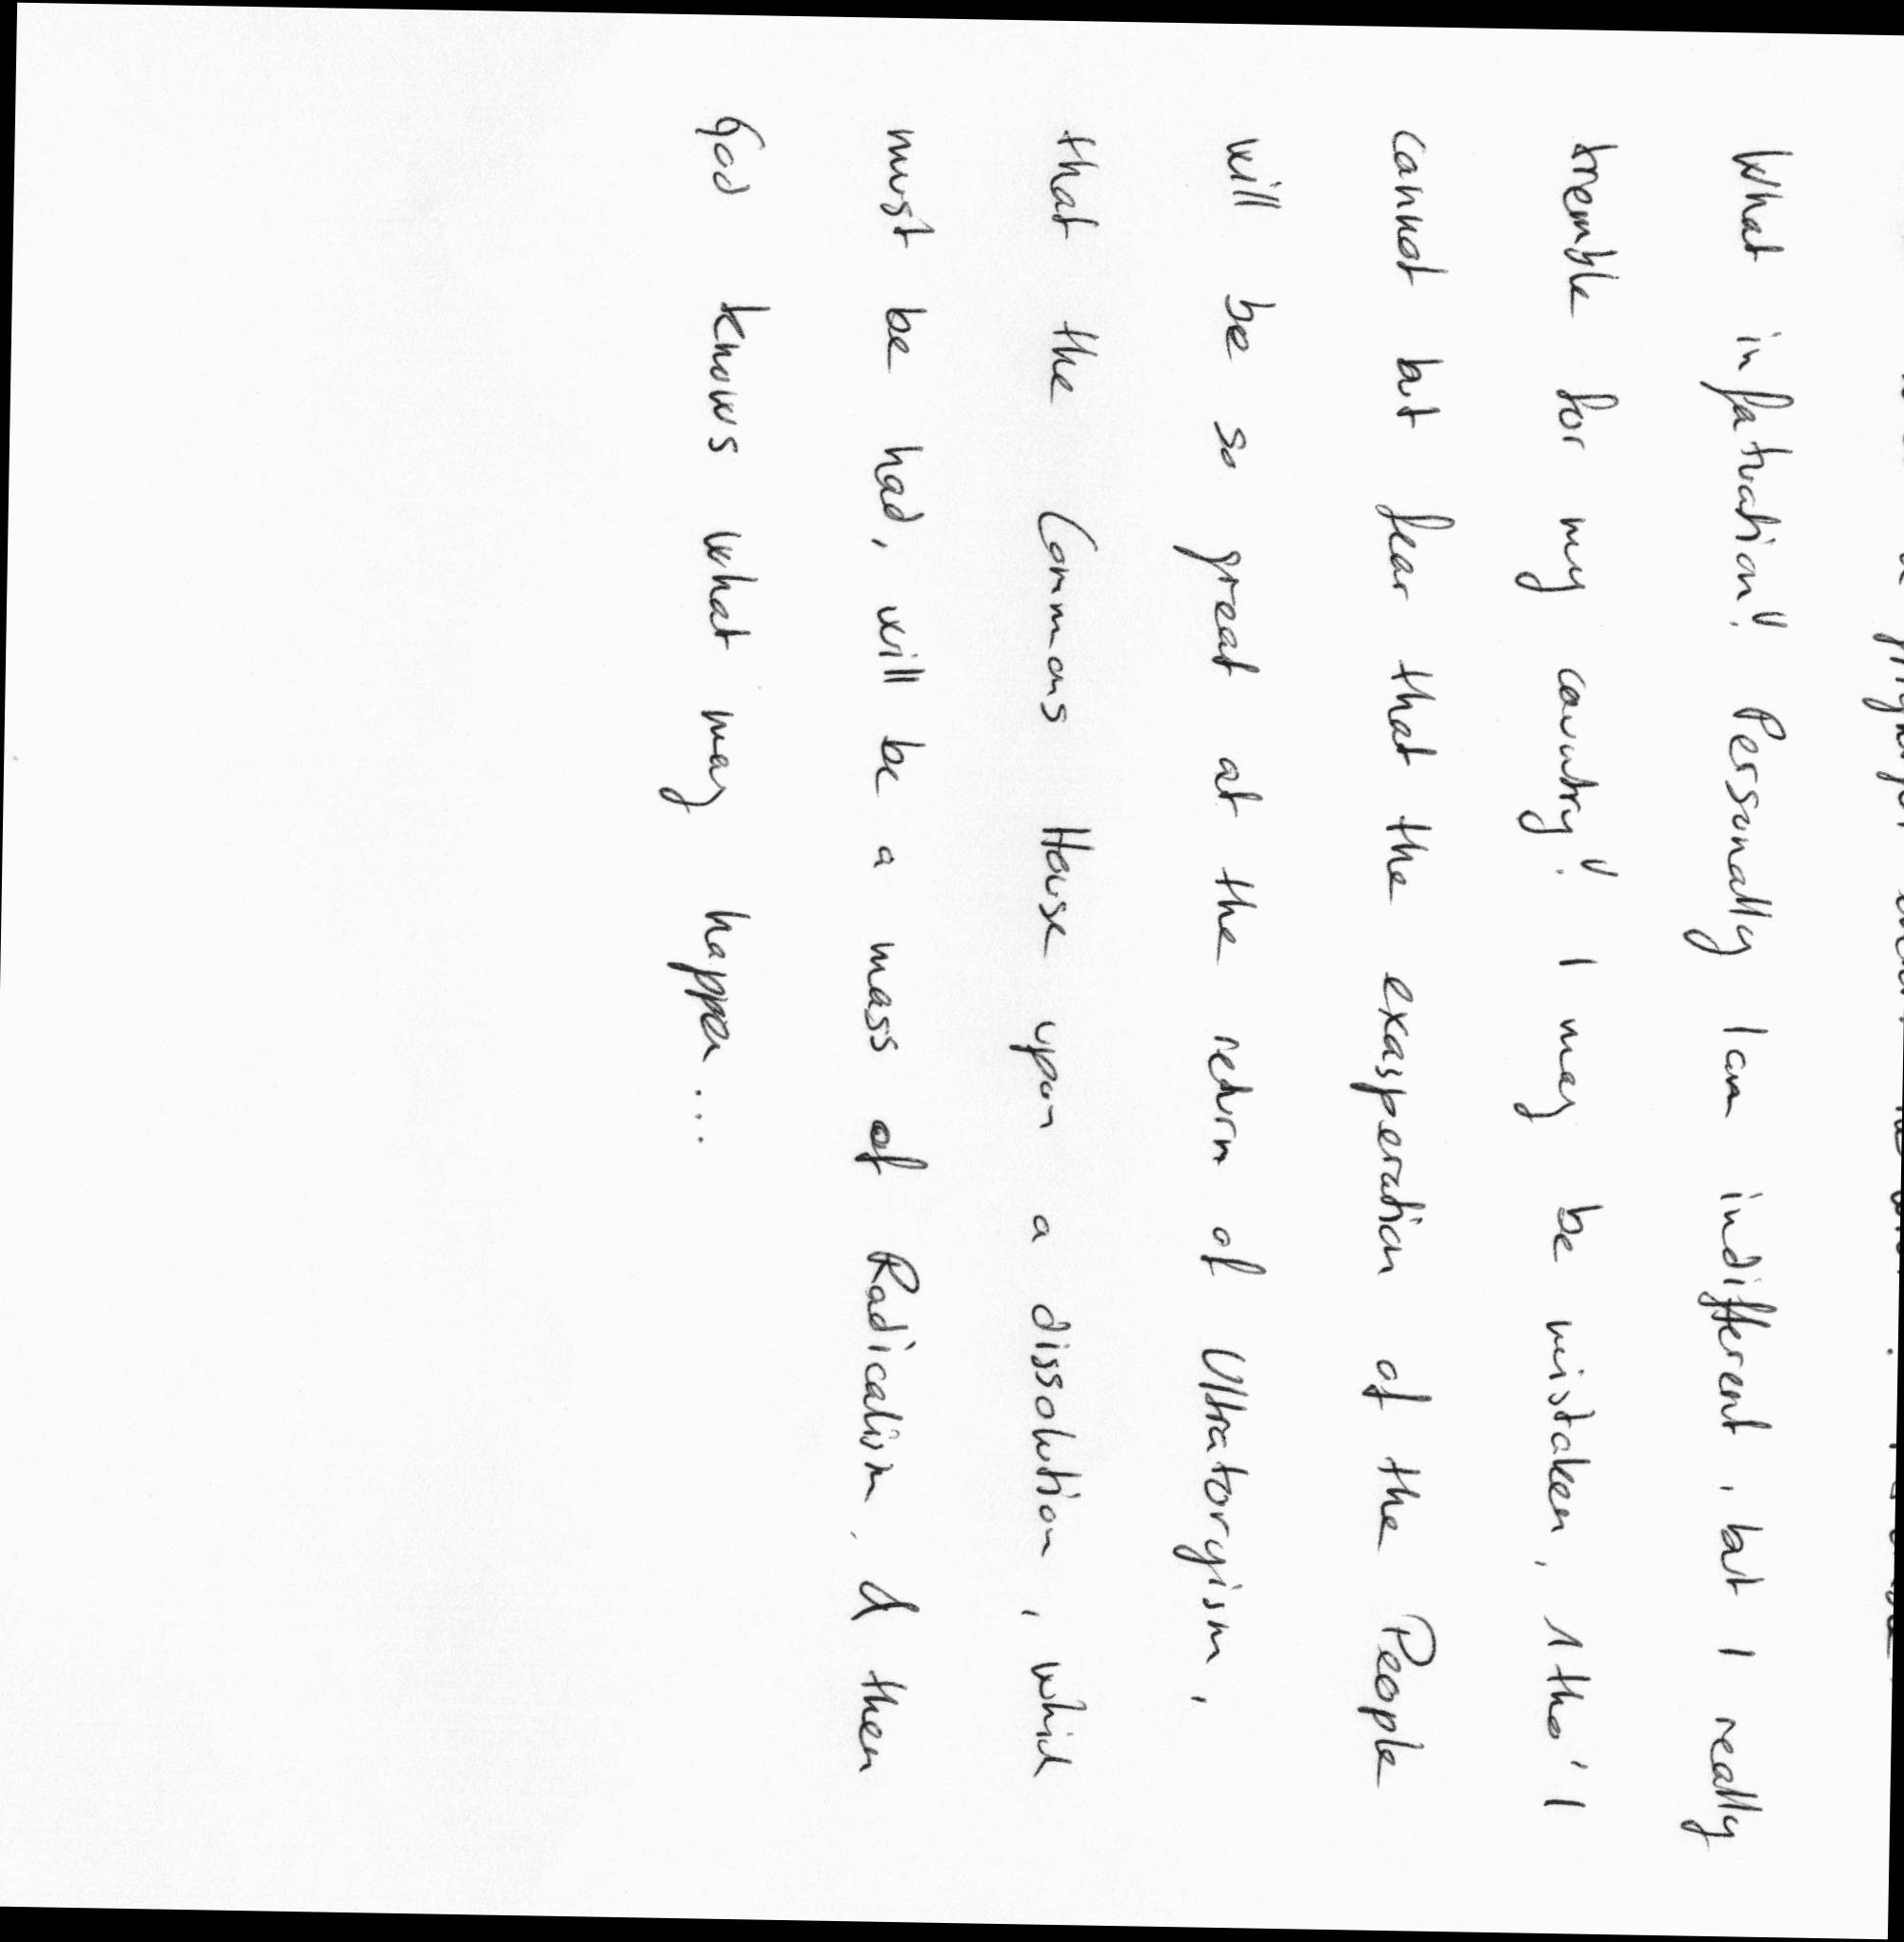 What infatuation!! Personally I am indifferent, but I really
tremble for my country!! I may be mistaken, tho' I
cannot but fear that the exasperation of the People
will be so great at the return of Ultratoryism,
that the Commons House upon a dissolution, which
must be had, will be a mass of Radicalism, & then
God knows what may happen...